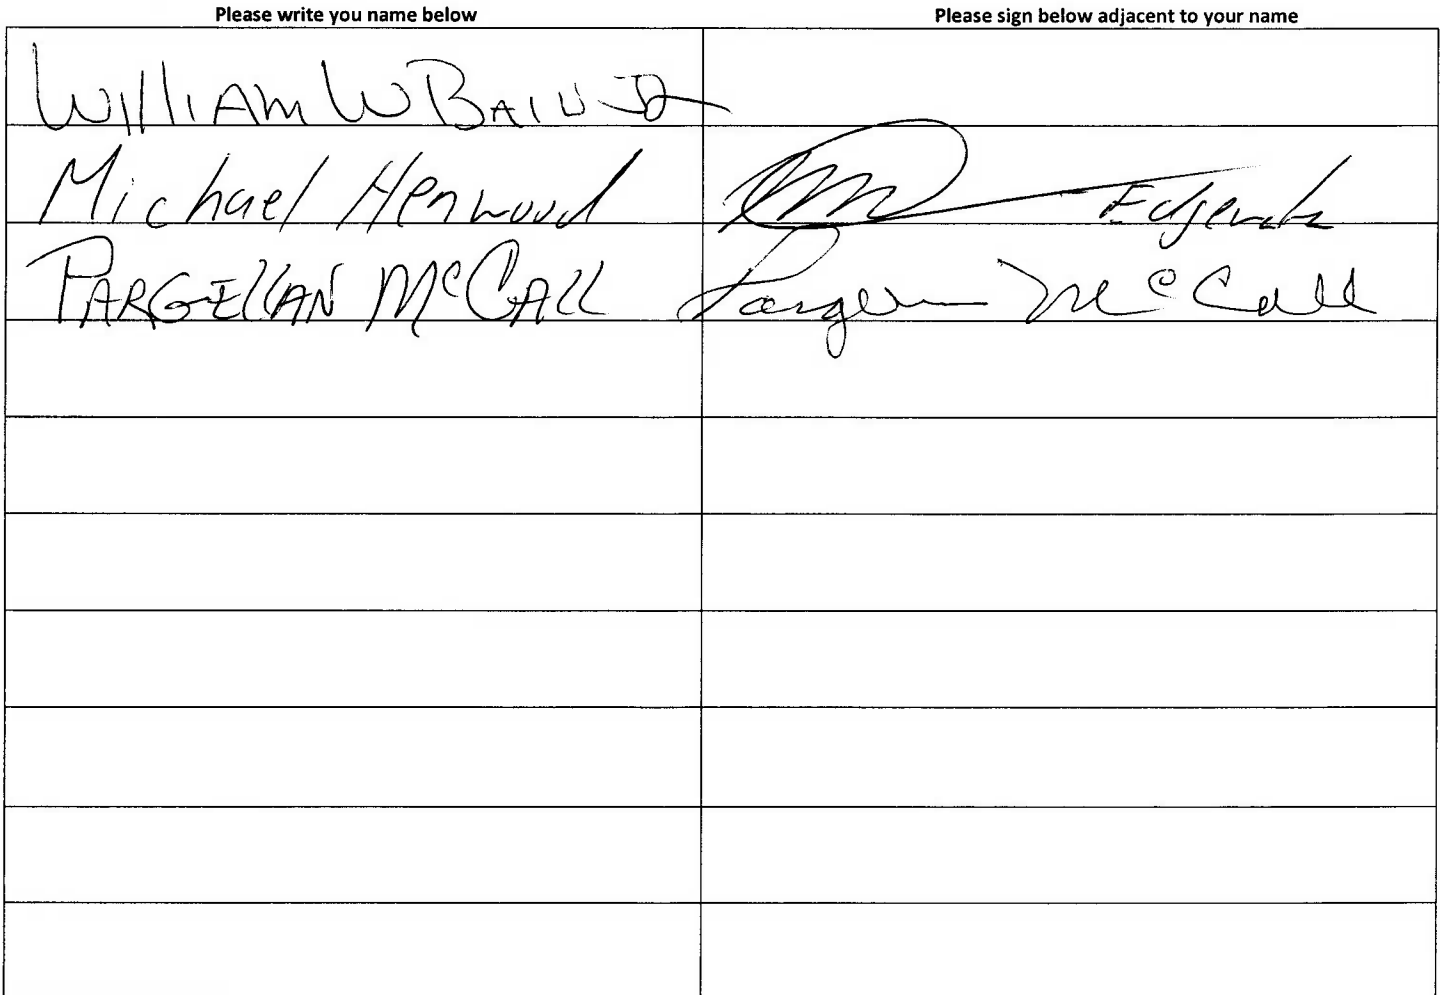 Please write you name below Please sign below adjacent to your name
WILLIAM W BAIN JR
Michael Henwood
PARGELLAN McCALL Pargen McCall